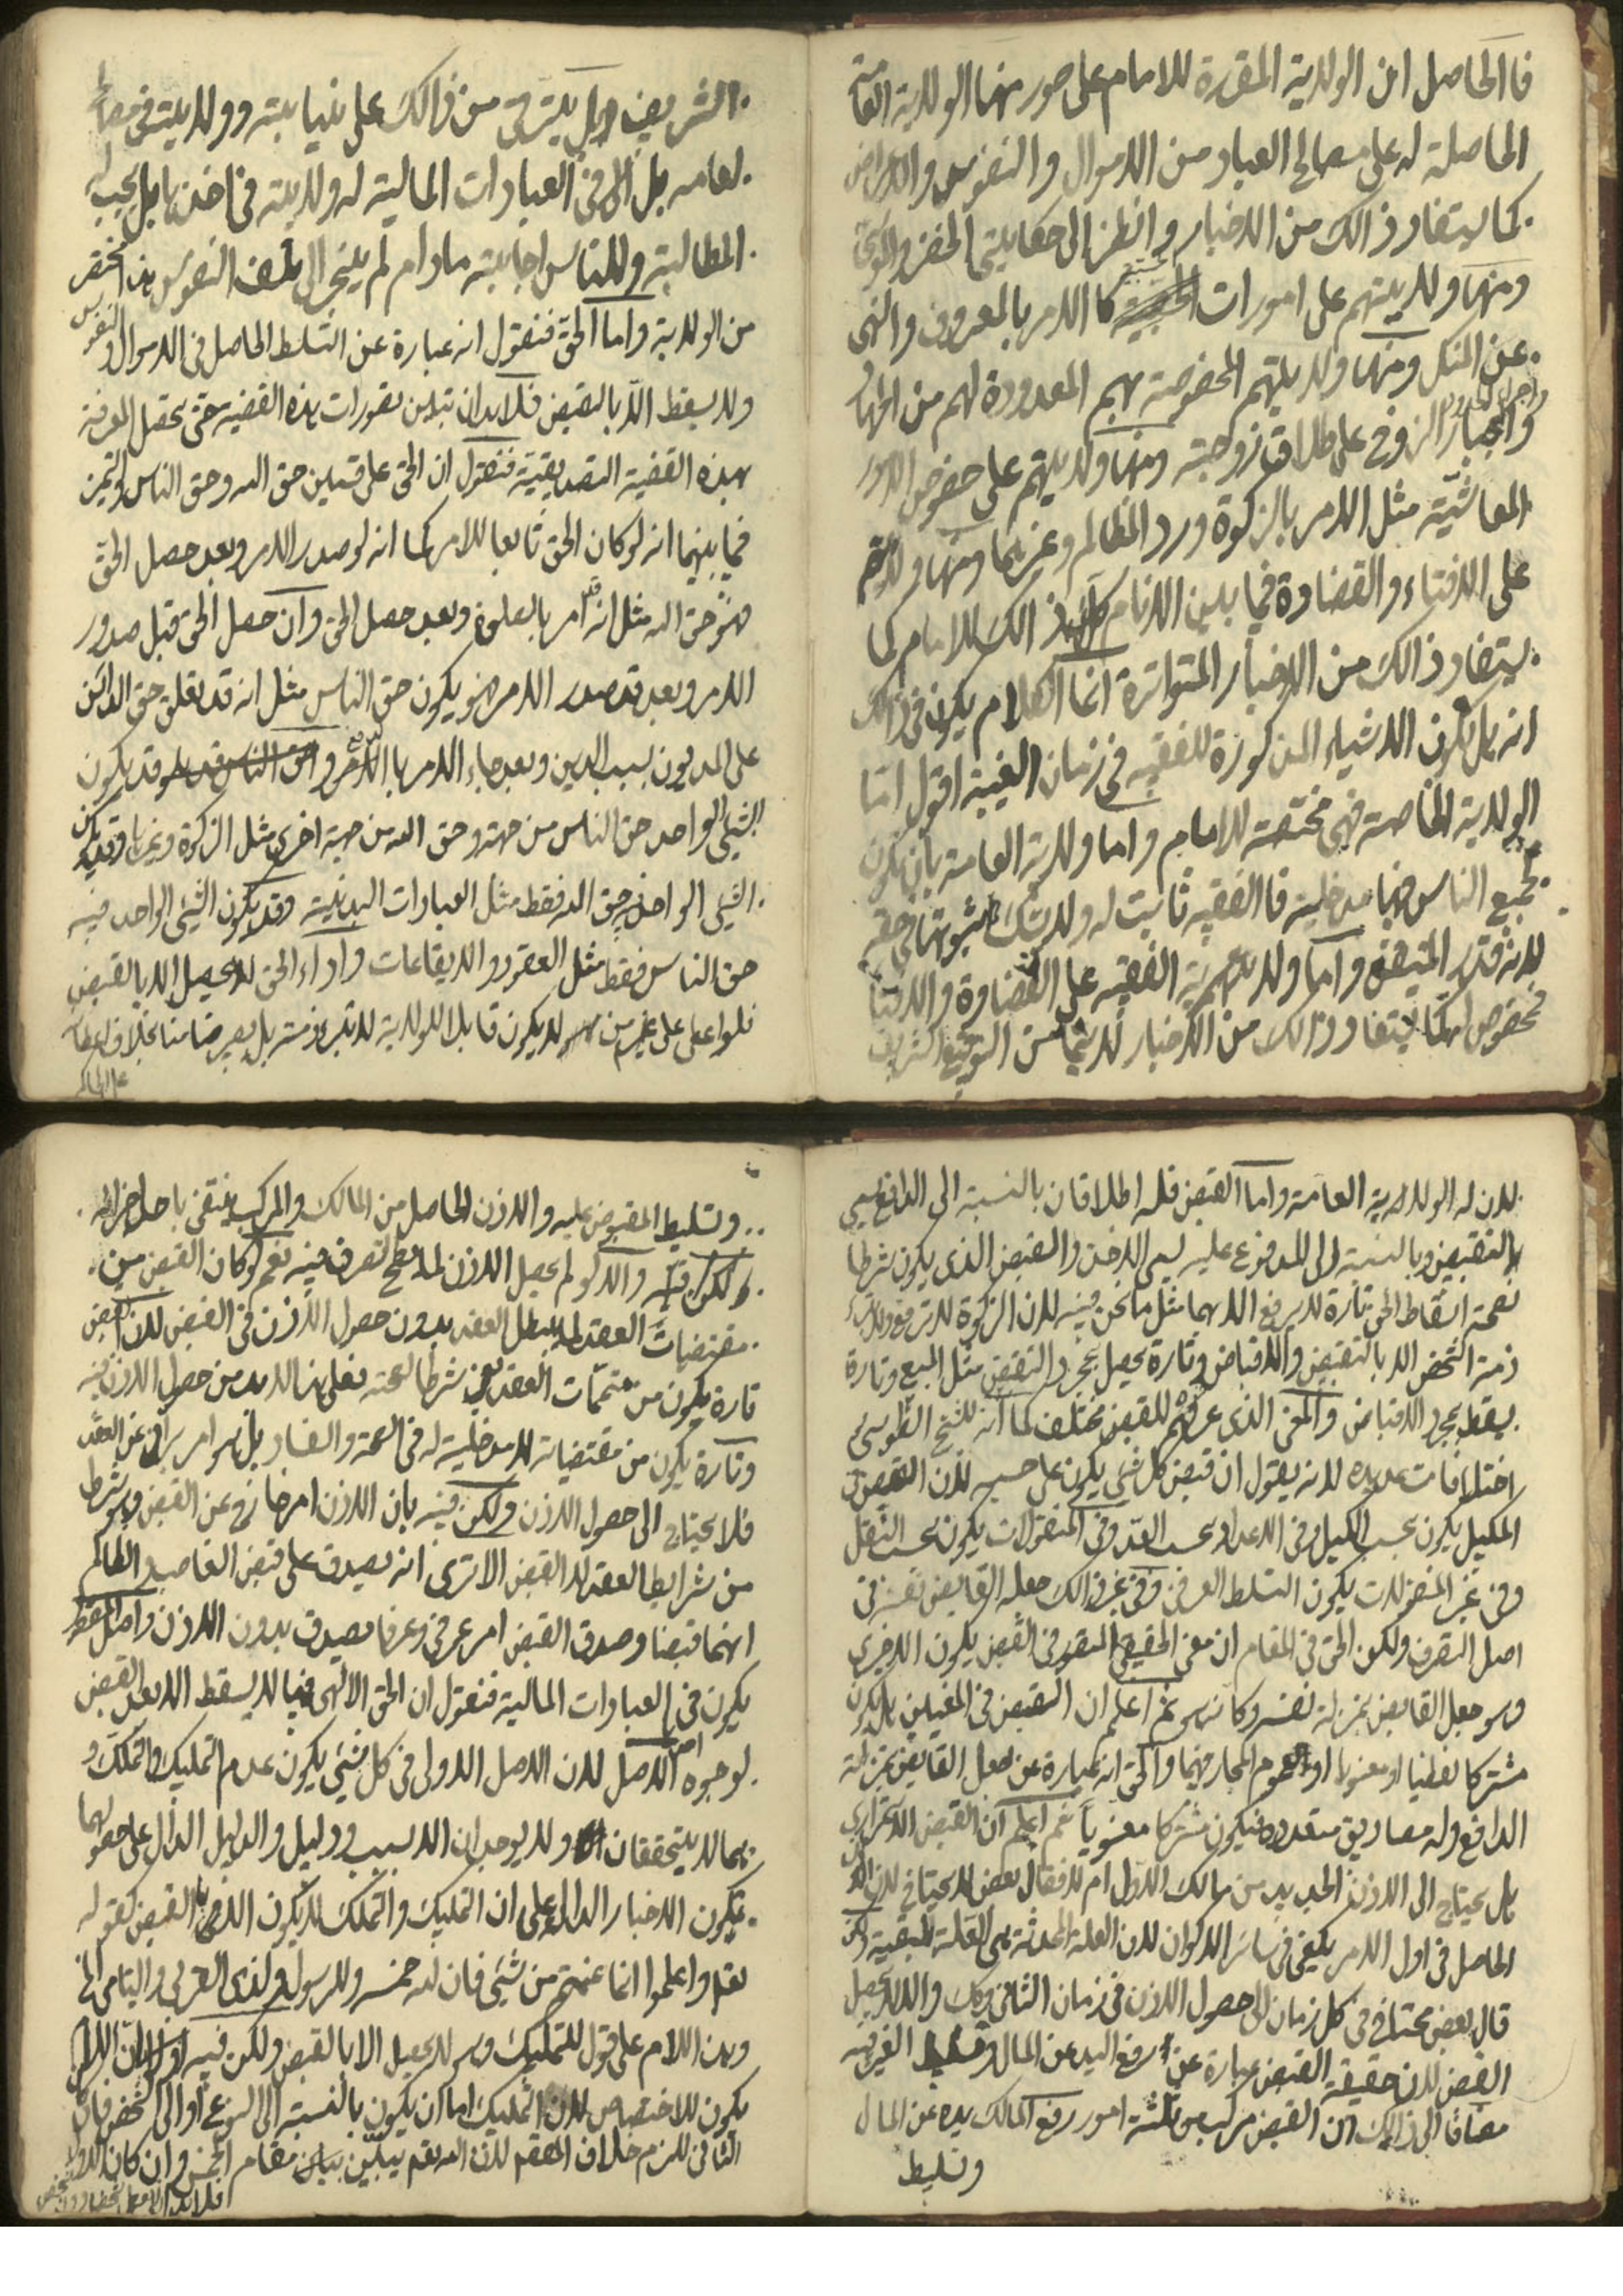 فا الحاصل ان الولاية المقررة للامام على صور منها الولاية العامة
الحاصلة له على مصالح العباد من الاموال والنفوس والاعراض
كما يستفاد ذالك من الاخبار وانظر الى حكايتي الخضر
ومنها ولايتهم على امورات الحسبية كا الامر بالمعروف والنهى
عن المنكر ومنها ولايتهم المخصوصة بهم المعدودة لهم من الجهاد
واجبار الزوج على طلاق زوجته ومنها ولايتهم على خصوص الامور
المعاشية مثل الامر بالزكوة ورد المظالم وغيرهما ومنها ولايتهم
على الافتاء والقضاوة فيما بين الانام ذالك للامام كما
يستفاد ذالك من الاخبار المتواترة انما الكلام يكون في ذالك
انه هل يكون الاشياء المذكورة للفقيه في زمان الغيبة اقول اما
الولاية الخاصة فهى مختصة للامام واما ولاية العامة بان يكون
لجميع الناس فيها مدخلية فا الفقيه ثابت له ولا شك ثبوتها في حقه
لانه قدر المتيقن واما ولاية الفقيه على القضاوة والافتاء
مخصوص لهما يستفاد ذالك من الاخبار لا سيما من التوقيع الشريف
الشريف هل يترقى من ذالك على نيابته وولايته في مصالح
لعامه بل الى في العبادات المالية له ولاية في اخذها بل يجب له
المطالبة وللناس اجابته مادام لم ينجر الى تلف النفوس هذا مختصر
من الولاية واما الحق فنقول انه عبارة عن التسلط الحاصل في الاموال والنفوس
ولا يسقط الا بالقبض فلابد ان تبين تصورات هذه القضية حتى يحصل المعرفة
بهذه القضية التصديقية فنقول ان الحق على قسمين حق الله وحق الناس والتميز
فيما بينهما انه لو كان الحق تابعا للامر كما انه لو صدر الامر وبعد حصل الحق
فهو حق الله مثل انه قد امر بالصلوة وبعد حصل الحق وان حصل الحق قبل صدور
الامر وبعد قد صدر الامر فهو يكون حق الناس مثل انه قد تعلق حق الدائن
على المديون بسبب الدين وبعد جاء الامر با وقد يكون
الشئ الواحد حق الناس من جهة وحق الله من جهة اخرى مثل الزكوة وغيرها وقد يكون
الشئ الواحد فيه حق الله فقط مثل العبادات البدنية وقد يكون الشئ الواحد فيه
حق الناس فقط مثل العقود والايقاعات واداء الحق لا يحصل الا بالقبض
فلو اعطى على غير من لا يكون قابلا للولاية لا تبرء ذمته بل يصير ضامنا بخلاف اعطائه
على الحاكم
لان له الولاية العامة واما القبض فله اطلاقان بالنسبة الى الدافع يسمى
بالتقبيض وبالنسبة الى المدفوع عليه يسمى الاخذ والقبض الذى يكون شرطا
لصحة اسقاط الحق تارة لا يرفع الا بهما مثل ما نحن فيه لان الزكوة لا ترفع ولا تبرء
ذمة الشخص الا بالتقبيض والاقباض وتارة يحصل بمجرد التقبيض مثل المبيع وتارة
يسقط بمجرد الاقباض والمعنى الذى عرفتم للقبض مختلف كما انه للشيخ الطوسى
اختلافات عديده لانه يقول ان قبض كل شئ يكون على حسبه لان القبض في
المكيل يكون بحسب الكيل وفي الاعداد بحسب العدد وفي المنقولات يكون بحسب النقل
وفي غير المنقولات يكون التسلط العرفى وفي غير ذالك جعله القابض نفسه في
اصل التصرف ولكن الحق في المقام ان معنى الحقيقى المتصور في القبض يكون الاخيرى
وهو جعل القابض بمنزلة نفسه وكانه هو ثم اعلم ان القبض في المعنيين هل يكون
مشتركا لفظيا او معنويا او العموم المجاز فيهما والحق انه عبارة عن جعل القابض بمنزلة
الدافع وله مصاديق متعدده فيكون مشتركا معنويا ثم اعلم ان القبض الاستمرارى
هل يحتاج الى الاذن الجديد من مالك الاول ام لا فقال بعض لا يحتاج لان الاذن
الحاصل في اول الامر يكفى في سائر الاكوان لان العلة المحدثة هى العلة المبقية ولكن
قال بعض يحتاج في كل زمان الى حصول الاذن في زمان الثانى وكك والا لا يحصل
القبض لان حقيقة القبض عبارة عن رفع اليد عن المال الغير فيه
مضافا الى ذالك ان القبض مركب من ثلثة امور رفع المالك يده عن المال
وتسليط
وتسليط المقبوض عليه والاذن الحاصل من المالك والمركب ينتفى باحد اجزائه
ولكن فيه والا لو لم يحصل الاذن لما يصح تصرف فيه نعم لو كان القبض من
مقتضيات العقد لا يبطل العقد بدون حصول الاذن في القبض لان القبض
تارة يكون من متممات العقد يعنى شرطا لصحته فعلى هذا لابد من حصول الاذن فيه
وتارة يكون من مقتضياته لا مدخلية له في الصحة والفساد بل هو امر برانى عن العقد
فلا يحتاج الى حصول الاذن ولكن فيه بان الاذن امر خارج عن القبض وهو شرط
من شرايط العقد لا القبض الا ترى انه يصدق على قبض الغاصب والظالم
انهما قبضا وصدق القبض امر عرفى وعرفا يصدق بدون الاذن واصل المقصد
يكون في العبادات المالية فنقول ان الحق الالهى فيها لا يسقط الا بعد القبض
لوجوه احدها الاصل لان الاصل الاولى في كل شئ يكون عدم التمليك والتملك و
بهما لا يتحققان ولا يوجدان الا بسبب ودليل والدليل الدال على حصولهما
يكون الاخبار الدالة على ان التمليك والتملك لا يكون الا بالقبض كقوله
تعالى واعلموا انما غنمتم من شئ فان لله خمسه وللرسول ولذى القربى واليتامى الخ
وهذا اللام على قول للتمليك وهو لا يحصل الا بالقبض ولكن فيه اولا ان اللام
يكون للاختصاص لان التمليك اما ان يكون بالنسبة الى النوع او الى الشخص فان
الثانى للزم خلاف لان الله يبين بيان مقام الجنس وان كان الاول
فلابد